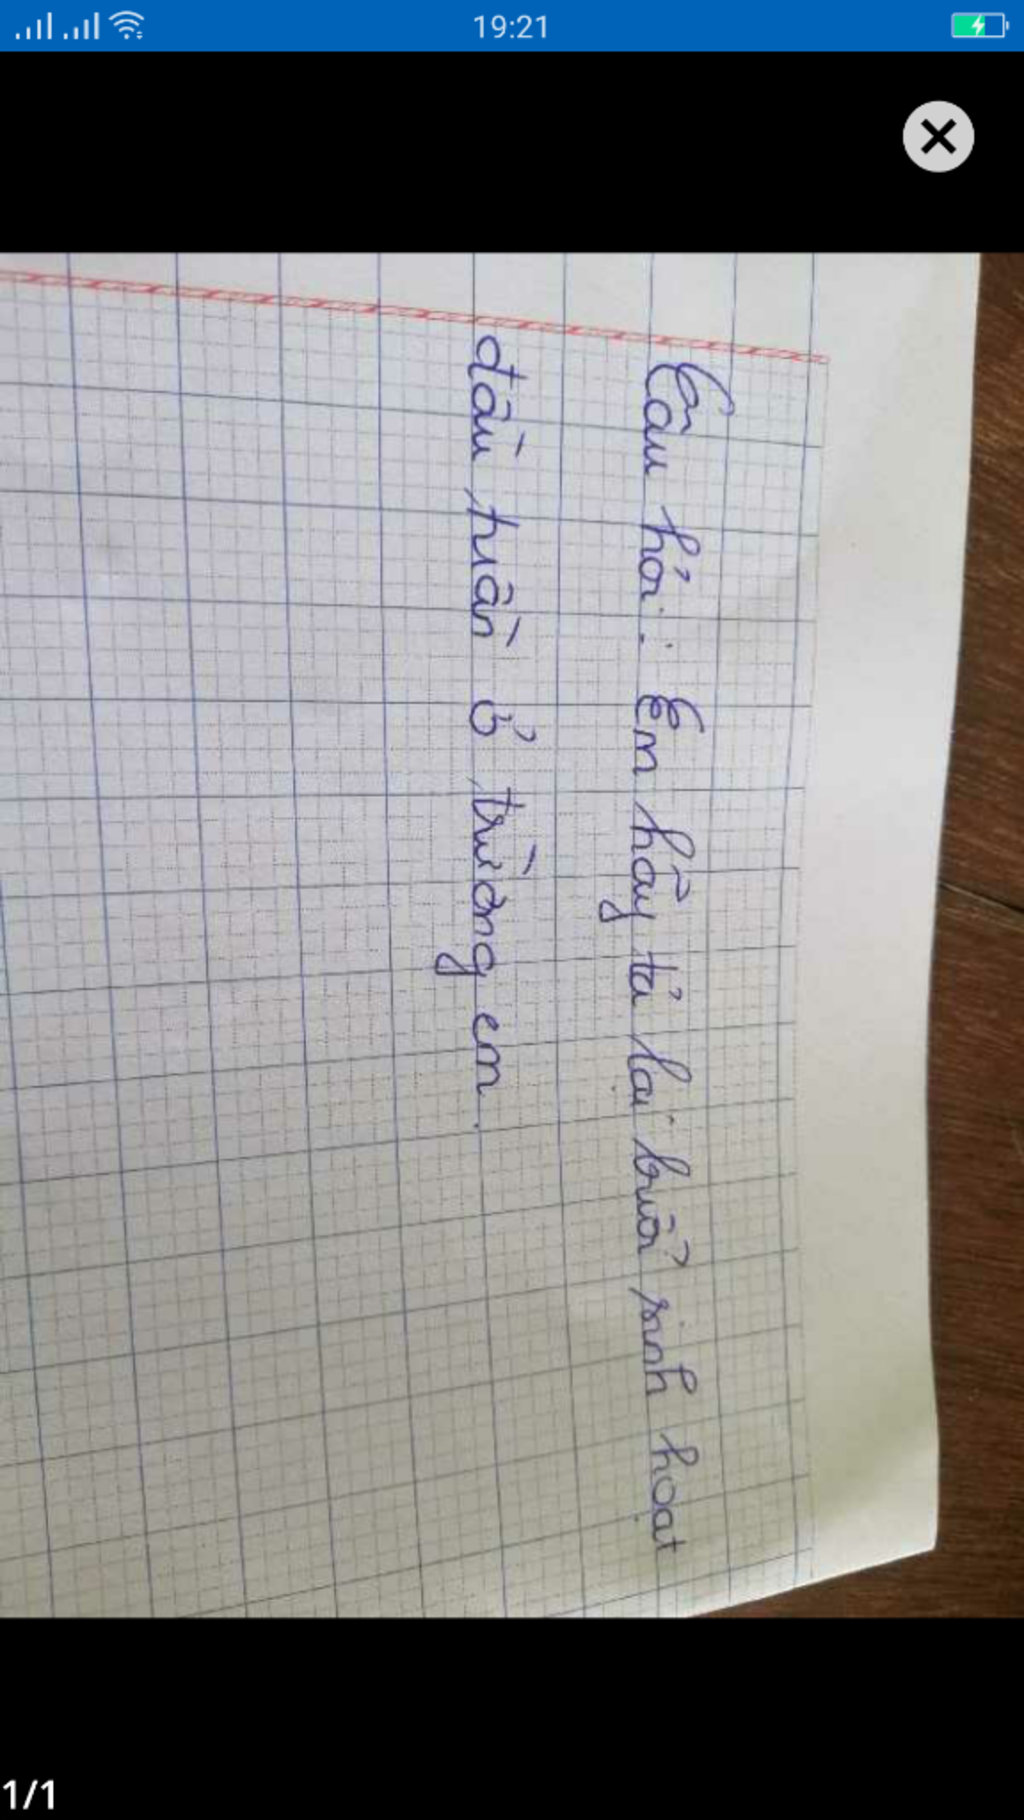 19:21
Câu hỏi: Em hãy tả lại buổi sinh hoạt
đầu tuần ở trường em.
1/1